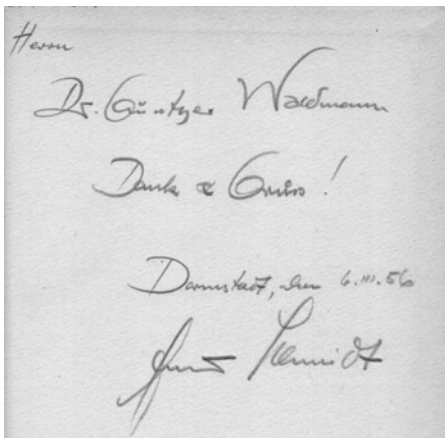 Herrn
Dr. Günther Waldmann
Dank & Gruss!
Darmstadt, den 6.III.56
Arno Schmidt